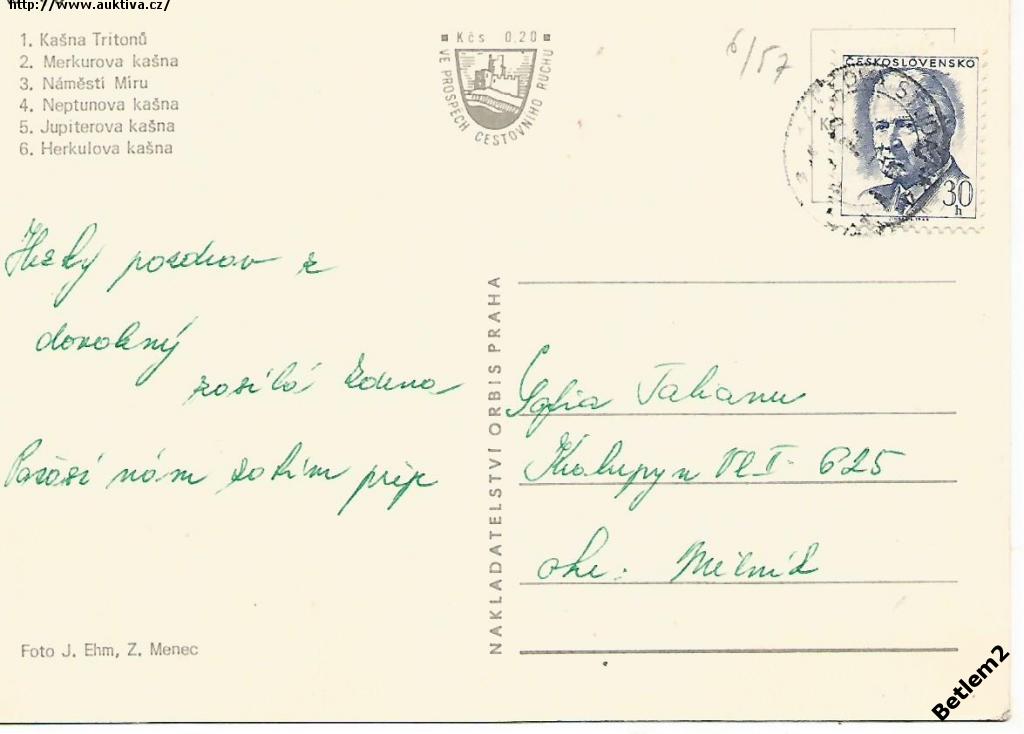 http://www.auktiva.cz/
1. Kašna Tritonů
2. Merkurova kašna
3. Náměstí Míru
4. Neptunova kašna
5. Jupiterova kašna
6. Herkulova kašna
Kčs 0,20
VE PROSPĚCH CESTOVNÍHO RUCHU
6/57
ČESKOSLOVENSKO
30 h
Hezký pozdrav z
dovolený
zasílá Zdena
Počasí nám zatím přeje
NAKLADATELSTVÍ ORBIS PRAHA
Kralupy n Vl I. 625
okr. Mělník
Foto J. Ehm, Z. Menec
Betlem2